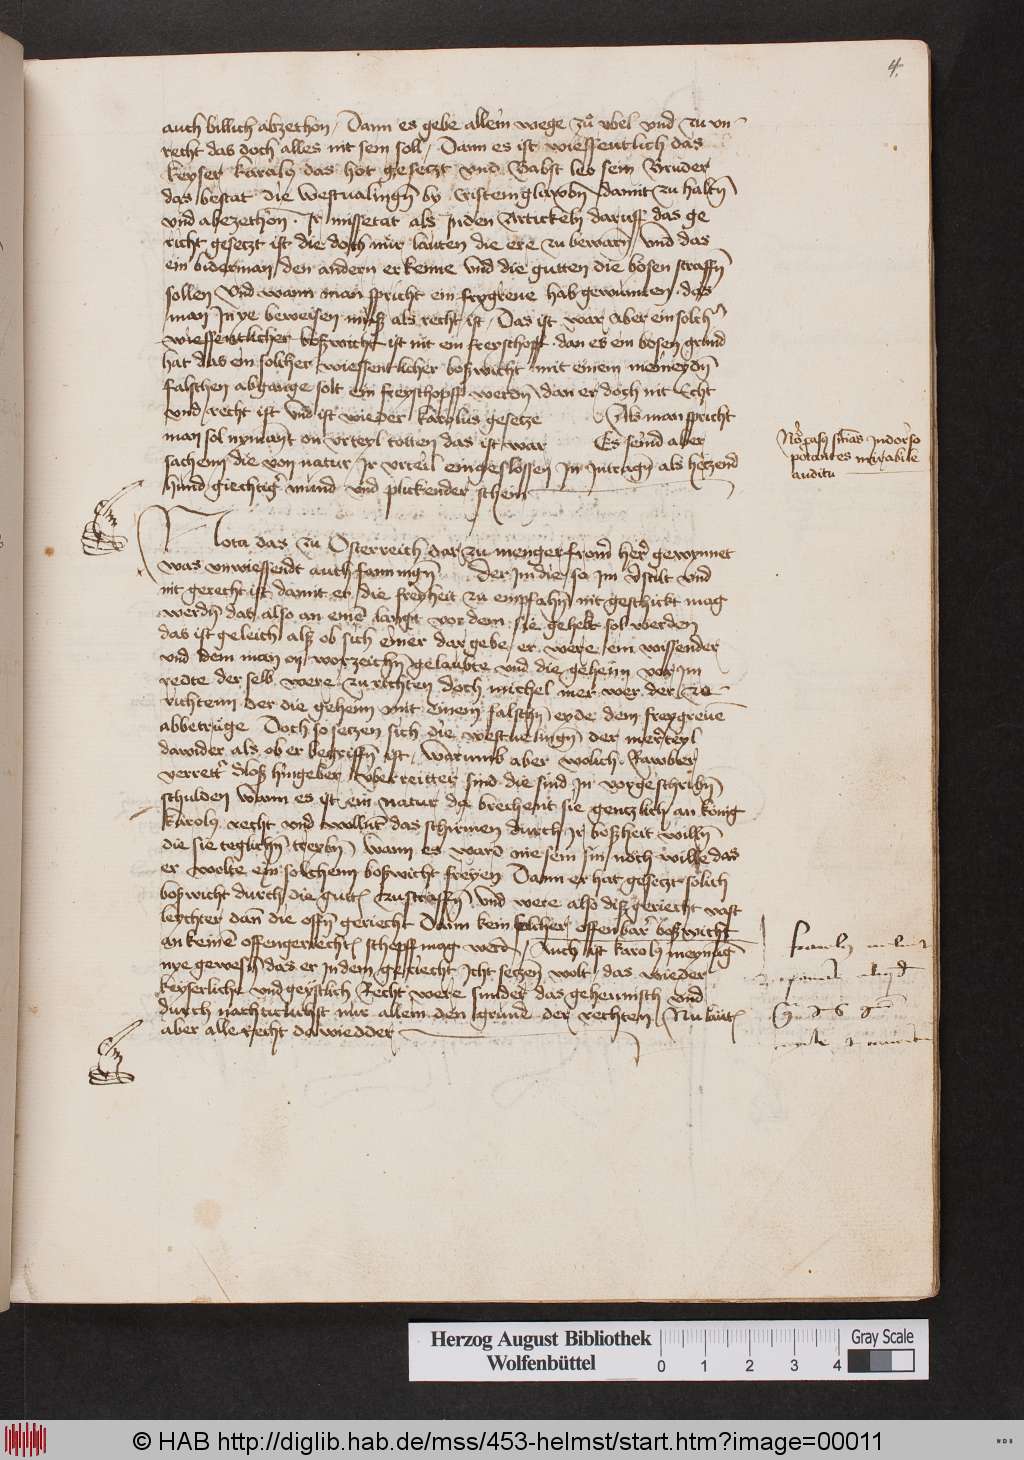 4.
auch billich abzethon / Dann es gebe allein wege zů vbel vnd zu vn
recht das doch alles nit sein soll / Dann es ist wiessentlich das
keyser karolus das hot gesetzt vnd Babst leo sein Bruder
das bestat die westualingn̄ by Cristeinglawbn̄ damit zu haltn̄
vnd abezethon . Ir missetat als Inden Artickeln daruff das ge
richt gesetzt ist die doch nür lauten die ere zu bewarn̄ / vnd das
ein biderman den andern erkenne vnd die gutten die bosen straffn̄
sollen vnd wann man spricht ein frygreue hab gewunnen . das
man In ye beweisen muß als recht ist / Das ist war aber ein solchr̄
wiessentlicher boßwicht ist nit ein freyschopff . dan es ein bosen grund
hat das ein solcher wiessentlicher boßwicht mit einem meineydn̄
falschen abgange solt ein freyschopff werdn̄ dan er doch nit Echt
vnd recht ist vnd ist wieder karolus gesetze Als man spricht
man sol nymant on vrteyl totten das ist war Es seind aber
sachenn die von natur Ir vrteil eingeslossen In Intragn̄ als hebzend
hund giechtigr̄ mund vnd plickender schein
auditu
Nota das zu Osterreich dar zu menger from̄ her̄ gewynnet
was vnwiessendt auch fannngn̄ Der In die so Im stilt vnd
nit gerecht ist damit er die freyheit zu empfahn̄ nit geschickt mag
werdn̄ das also an einē langt vor dem sie gehelt sol werden
das ist geleich alß ob sich einer dar gebe er were ein wissender
vnd dem man on worzeichn̄ gelaubte vnd die geheim vor Im
redte der selb were zu richten doch michel mer wer der zu
richtenn der die geheim mit einem falschn̄ eyde dem freygreue
abbetruge Doch so setzen sich die westuelingn̄ der merteyl
dawider als ob er begriffn̄ ist / Warumb aber wolich Rawber
verretr̄ Sloß hingeber vberreitter sind die sind In vorgeschribn̄
schulden wann es ist ein natur da brechent sie gentzlich an konig
karolus recht vnd wollnt das schirmen durch Ir boßheit willn̄
die sie teglichn̄ treybn̄ / wann es ward nie sein sin noch wille das
er wolte ein solchenn boßwicht freyen Dann er hat gesetzt solich
boßwicht durch die gutten zustraffn̄ vnd were also diß geriecht vast
leychter dan̄ die offn̄ geriecht Dann kein solicher offenbar̄ boßwicht
an keinē offengeriecht schepff mag werdn̄ / Auch ist karolus meynūg
nye gewesn̄ das er In dem geriecht Icht setzen wolt das wieder
keyserliche vnd geystlich Recht were sunder das geheimisch vnd
durch nachtrlichst nür allein den grunde der rechten / Nu lauten
aber alle recht do wiedder
Herzog August Bibliothek
Wolfenbüttel
0 1 2 3 4
Gray Scale
© HAB http://diglib.hab.de/mss/453-helmst/start.htm?image=00011